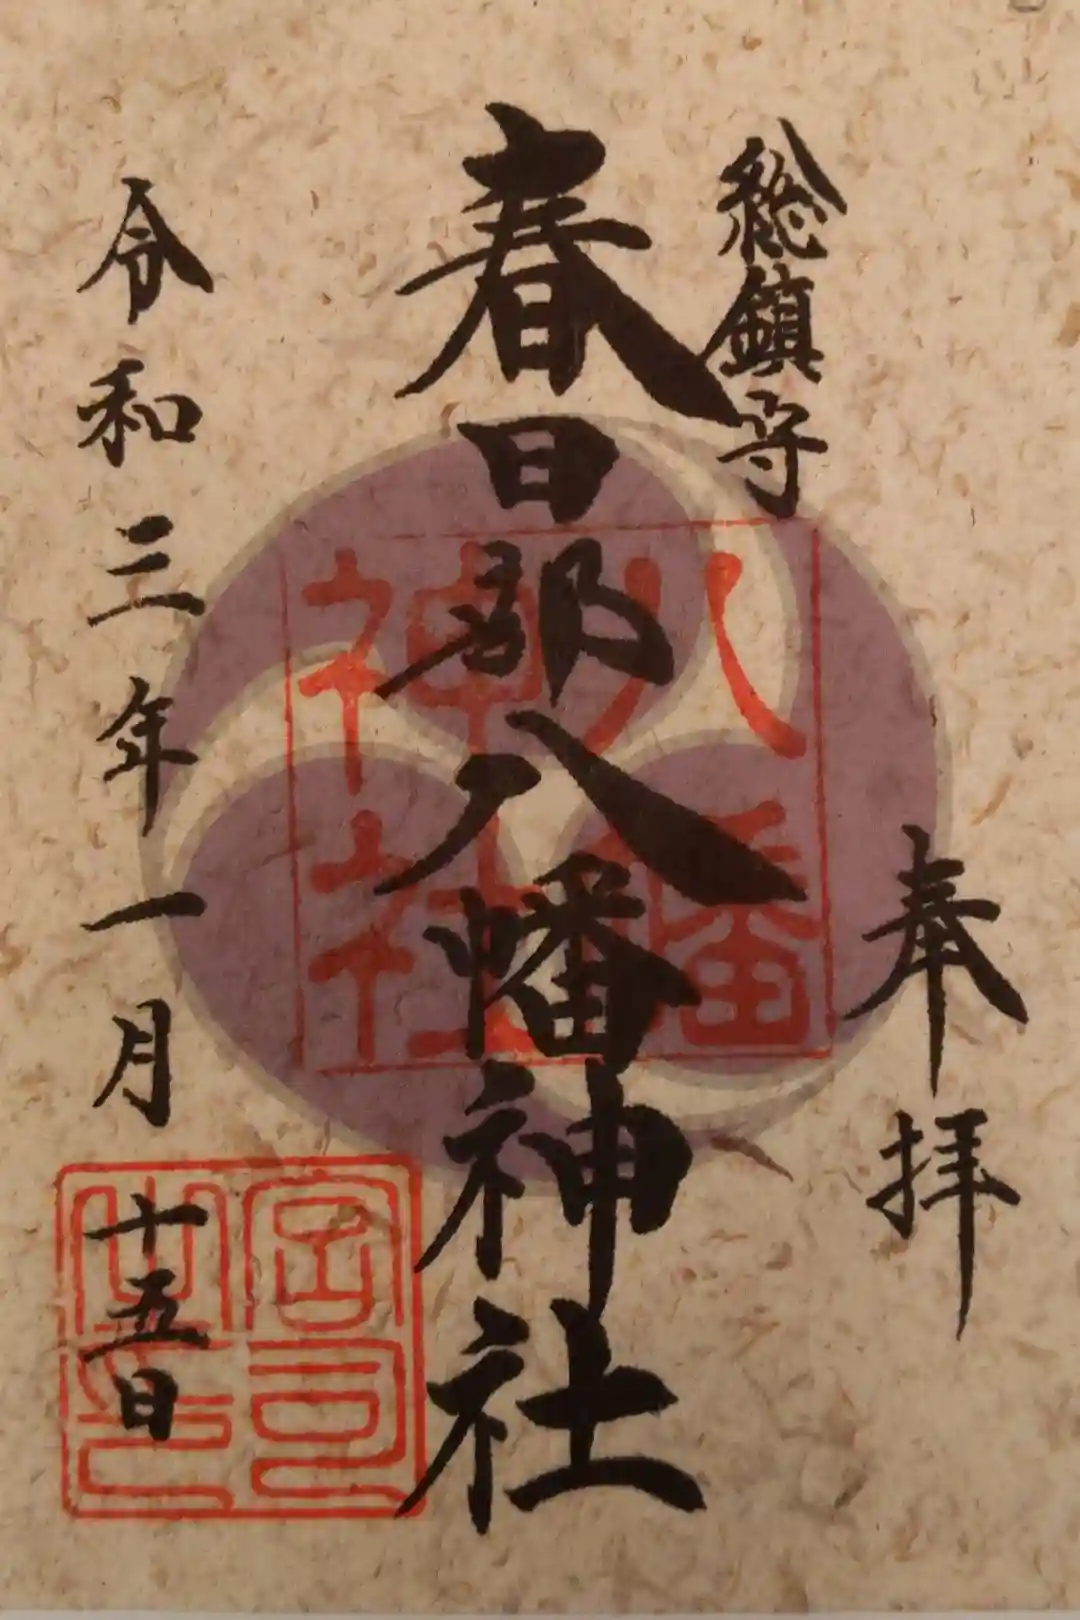 奉拝
総鎮守
春日部八幡神社
令和三年一月十五日
八幡
神社
宮司
之印